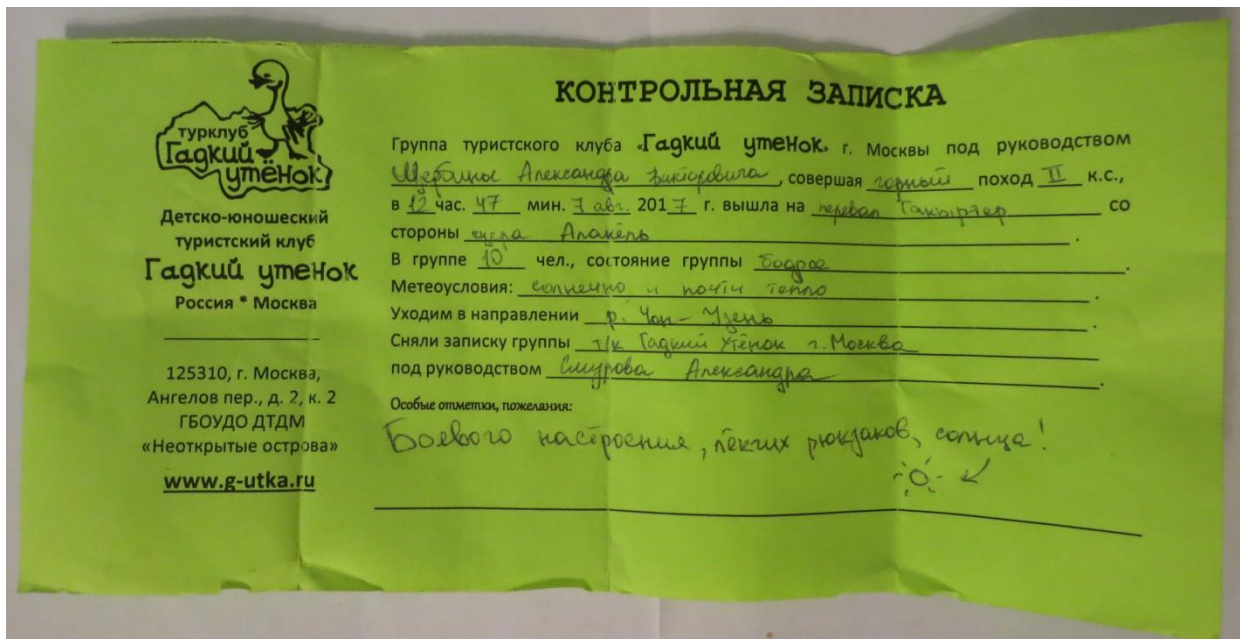 турклуб
Гадкий
утёнок
Детско-юношеский
туристский клуб
Гадкий утенок
Россия * Москва
125310, г. Москва,
Ангелов пер., д. 2, к. 2
ГБОУДО ДТДМ
«Неоткрытые острова»
www.g-utka.ru
КОНТРОЛЬНАЯ ЗАПИСКА
Группа туристского клуба «Гадкий утенок» г. Москвы под руководством
Александра Викторовича, совершая горный поход II к.с.,
в 12 час. 47 мин. 7 авг. 2017 г. вышла на перевал Такыртор со
стороны озера Алакёль.
В группе 10 чел., состояние группы бодрое.
Метеоусловия: солнечно и почти тепло.
Уходим в направлении р. Чон-Узень.
Сняли записку группы т/к Гадкий Утёнок г. Москва
под руководством Смурова Александра.
Особые отметки, пожелания:
Боевого настроения, лёгких рюкзаков, солнца!